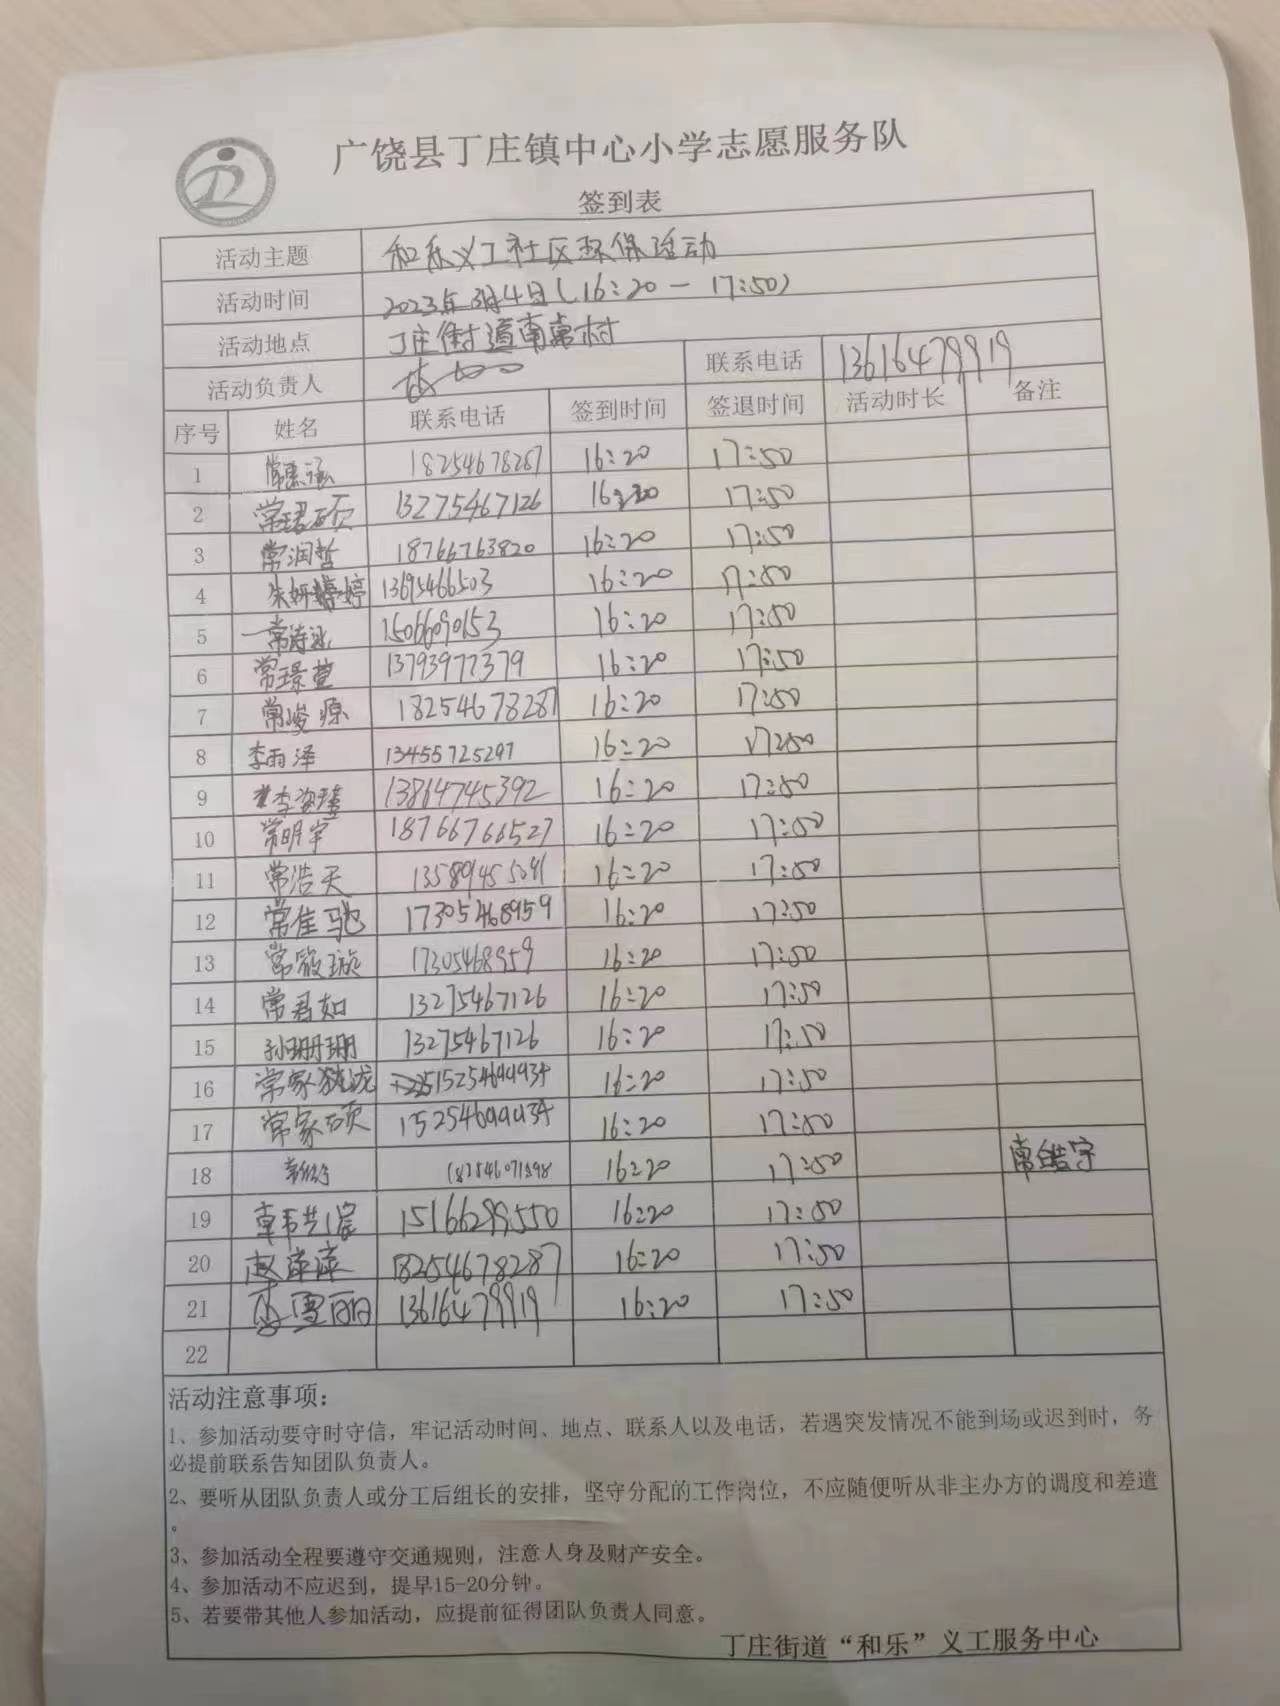 广饶县丁庄镇中心小学志愿服务队
签到表
活动主题 和乐义工社区环保活动
活动时间 2023年3月4日(16:20-17:50)
活动地点 丁庄街道南常村
活动负责人 联系电话 13616479919
序号 姓名 联系电话 签到时间 签退时间 活动时长 备注
1 常惠涵 16:20 17:50
2 常珺硕 13275467126 17:50
3 常润哲 18766763820 16:20 17:50
4 朱妍婷 13695466503 16:20 17:50
5 常涛泓 15066090153 16:20 17:50
6 常璟萱 13793977379 16:20 17:50
7 常峻源 18254678287 16:20 17:50
8 李雨泽 13455725297 16:20 17:50
9 李姿瑾 13864745392 16:20 17:50
10 常明宇 18766766527 16:20 17:50
11 常浩天 13589455091 16:20 17:50
12 常佳驰 17305468959 16:20 17:50
13 常筱璇 17305468959 16:20 17:50
14 常君如 13275467126 16:20 17:50
15 孙珊珊 13275467126 16:20 17:50
16 常家 16:20 17:50
17 常家硕 16:20 17:50
18 16:20 17:50 常皓宇
19 15166299550 16:20 17:50
20 赵萍萍 18254678287 16:20 17:50
21 李雪丽 13616479919 16:20 17:50
22
活动注意事项：
1、参加活动要守时守信，牢记活动时间、地点、联系人以及电话，若遇突发情况不能到场或迟到时，务
必提前联系告知团队负责人。
2、要听从团队负责人或分工后组长的安排，坚守分配的工作岗位，不应随便听从非主办方的调度和差遣
。
3、参加活动全程要遵守交通规则，注意人身及财产安全。
4、参加活动不应迟到，提早15-20分钟。
5、若要带其他人参加活动，应提前征得团队负责人同意。
丁庄街道“和乐”义工服务中心